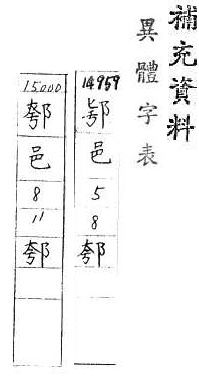 補充資料
異體字表
14959 邑 5 8
15000 邑 8 11